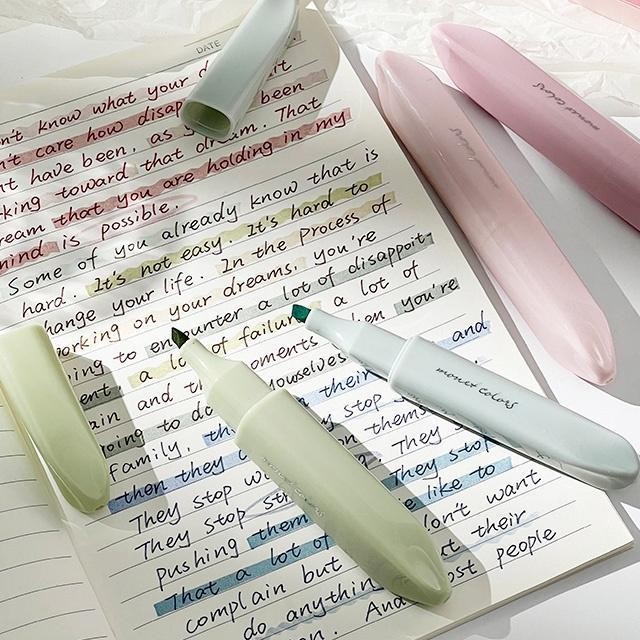 DATE
n't know what your d
n't care how disap been
't have been, as That
king toward that dream.
ream that you are holding in my
mind is possible.
Some of you already know that is
hard. It's not easy. It's hard to
hange your life. In the Process of
orking on your dreams, you're
ing to encounter a lot of disappoit-
ent. a lot of failur a lot of
ain and th oments when you're
going to do yourselves and
Family, th their
then they on thems
They stop w They stop
They stop st They stop
pushing them e like to
That a lot of don't want
complain but their
do anythin ost people
And
monet colors
monet colors
monet colors